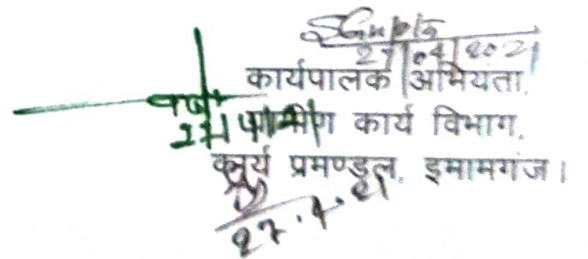 SGupta
27/04/2021
कार्यपालक अभियंता,
ग्रामीण कार्य विभाग,
कार्य प्रमण्डल, इमामगंज।
27.4.21